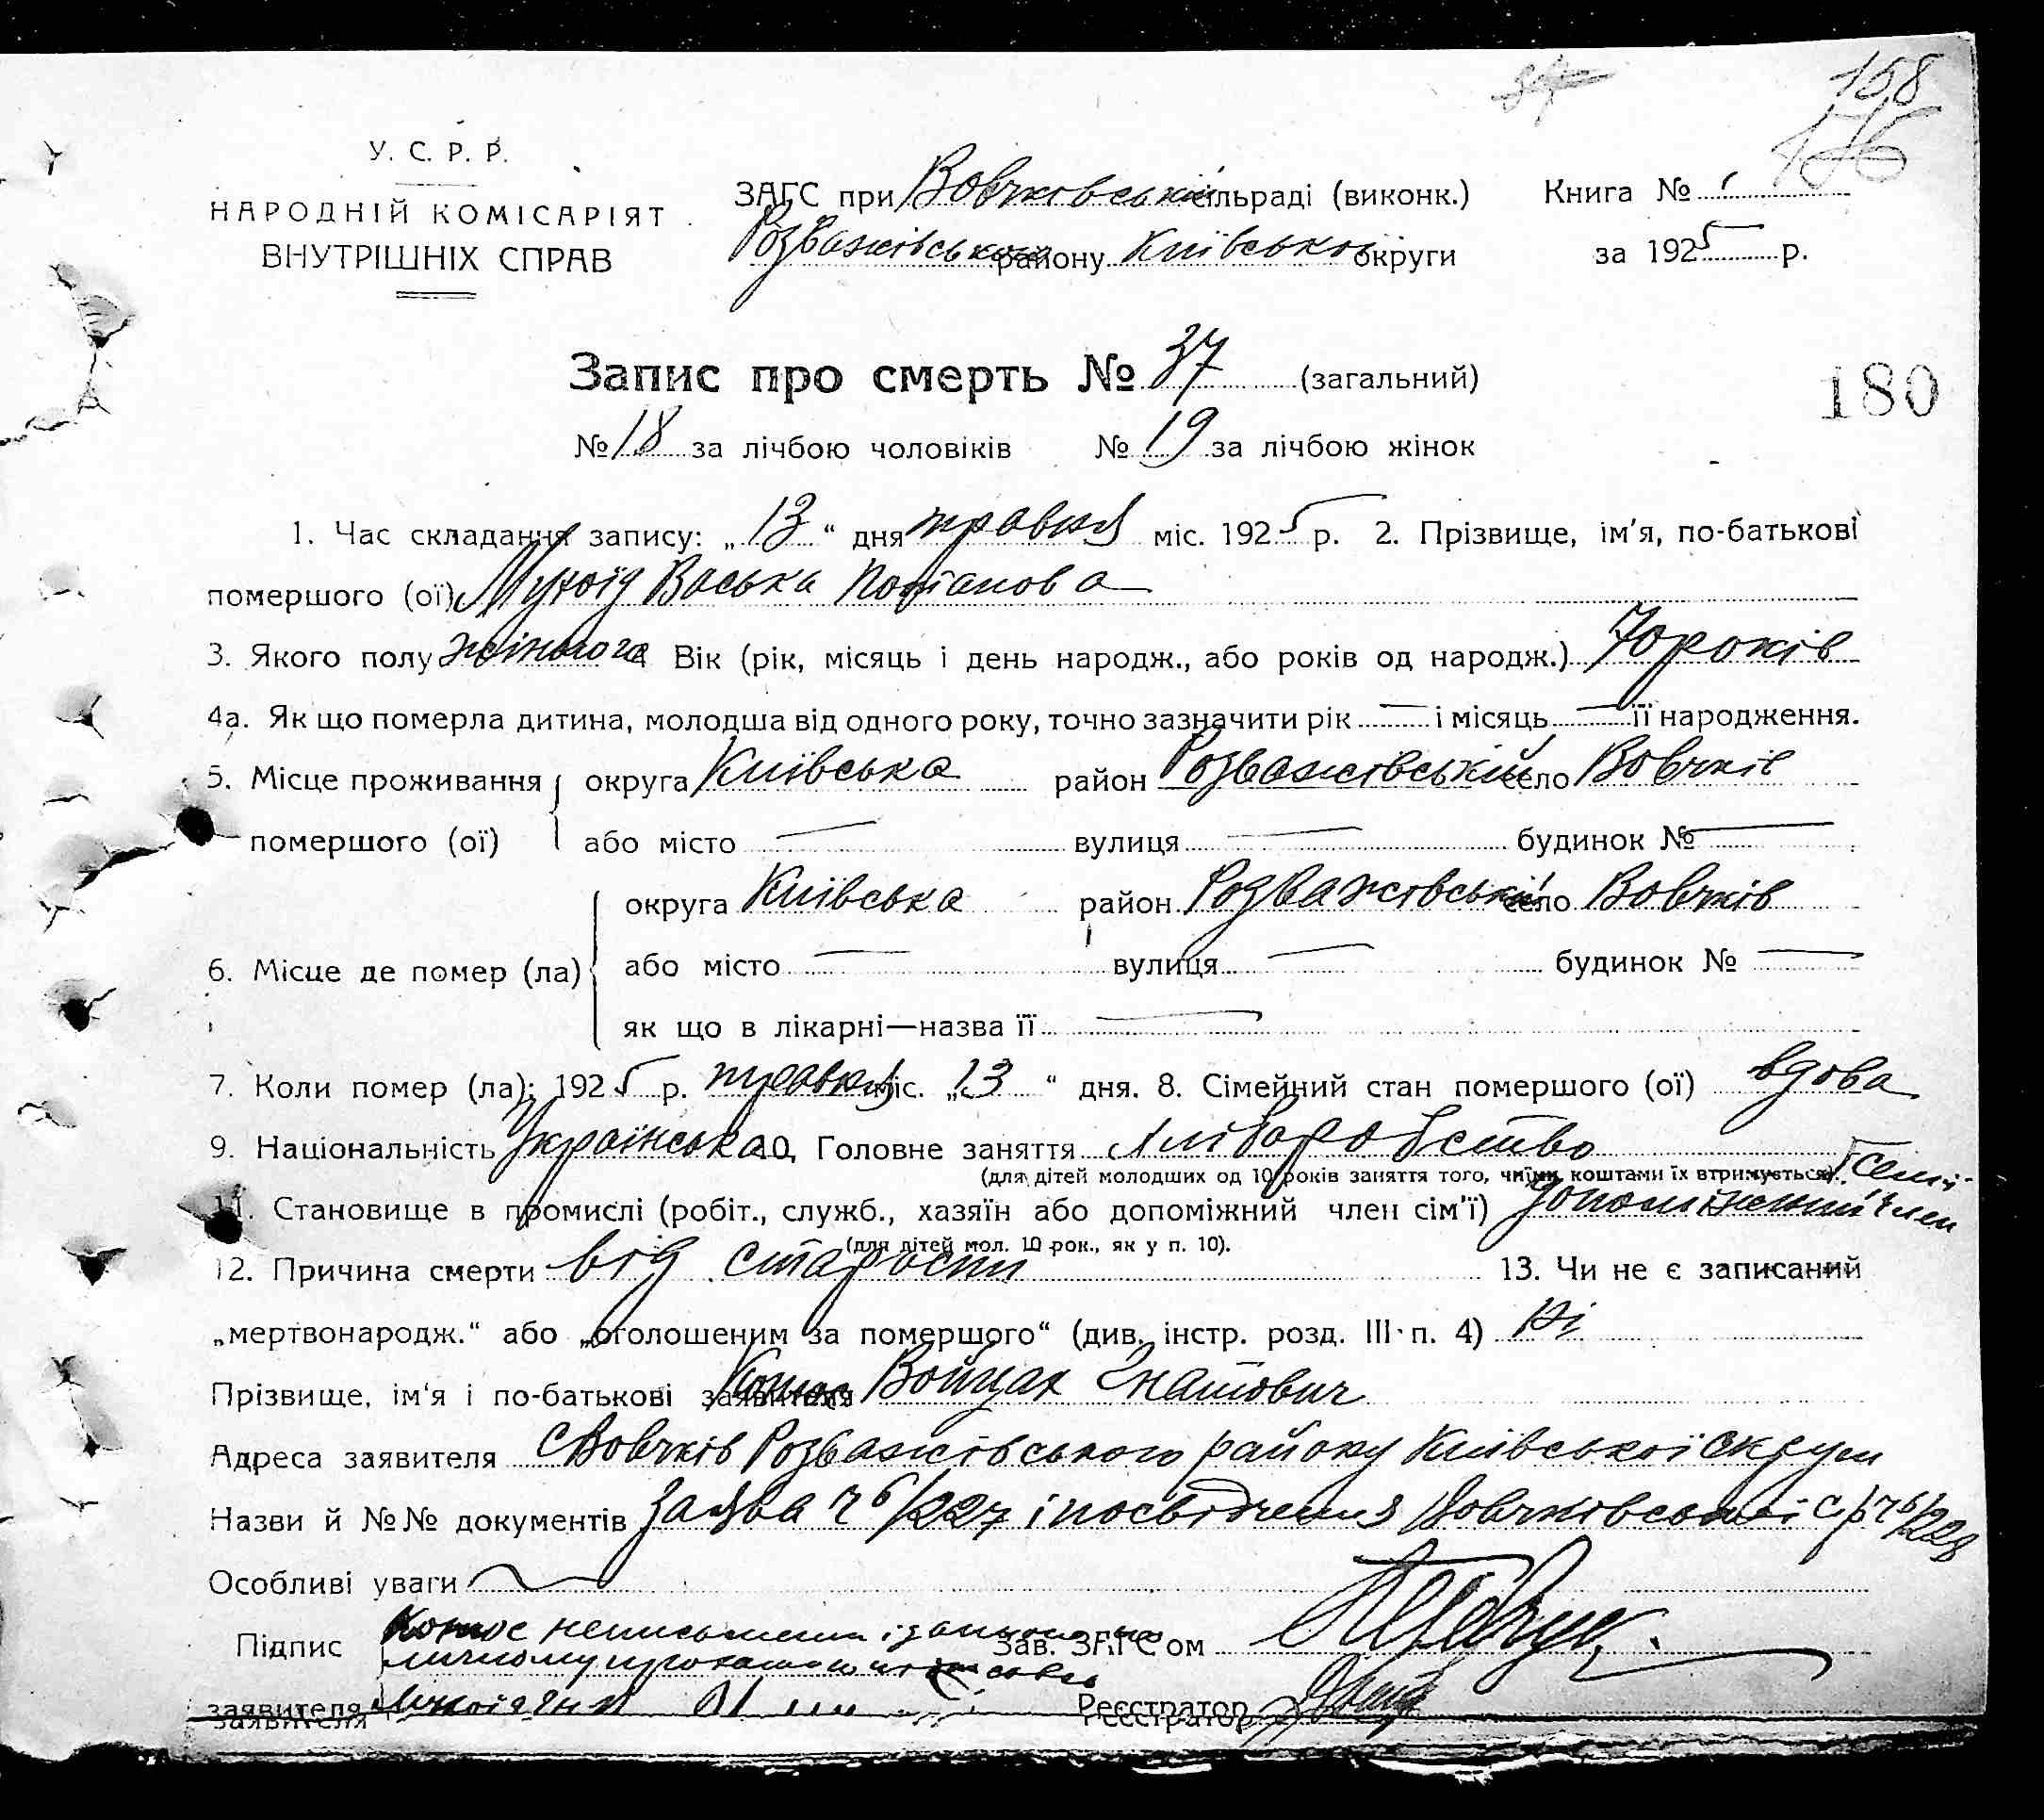 158
У. С. Р. Р.
НАРОДНІЙ КОМІСАРІЯТ
ВНУТРІШНІХ СПРАВ
ЗАГС при Вовчківській сільраді (виконк.) Книга № 1
Розважівського району Київської округи за 1925 р.
Запис про смерть № 37 (загальний)
180
№ 18 за лічбою чоловіків № 19 за лічбою жінок
1. Час складання запису: „13“ дня травня міс. 1925 р. 2. Прізвище, ім'я, по-батькові
помершого (ої) Васька
3. Якого полу жіночого Вік (рік, місяць і день народж., або років од народж.) 70 років
4а. Як що померла дитина, молодша від одного року, точно зазначити рік — і місяць — її народження.
5. Місце проживання округа Київська район Розважівський село Вовчків
помершого (ої) або місто — вулиця — будинок № —
округа Київська район Розважівський село Вовчків
6. Місце де помер (ла) або місто — вулиця — будинок № —
як що в лікарні—назва її —
7. Коли помер (ла): 1925 р. травня міс. „13“ дня. 8. Сімейний стан помершого (ої) вдова
9. Національність Українська 10. Головне заняття Хліборобство
(для дітей молодших од 10 років заняття того, чиїми коштами їх втримується).
11. Становище в промислі (робіт., служб., хазяїн або допоміжний член сім'ї) допоміжний член семі
(для дітей мол. 10 рок., як у п. 10).
12. Причина смерти від старости 13. Чи не є записаний
„мертвонародж.“ або „оголошеним за помершого“ (див. інстр. розд. III п. 4) Ні
Прізвище, ім'я і по-батькові заявителя Войцах Гнатович
Адреса заявителя С Вовчків Розважівського району Київської Округи
Назви й №№ документів Заява ч 6/227 і посвідчення Вовчківської с/р ч 6/228
Особливі уваги
Підпис неписьменний Зав. ЗАГСом
заявителя Реєстратор